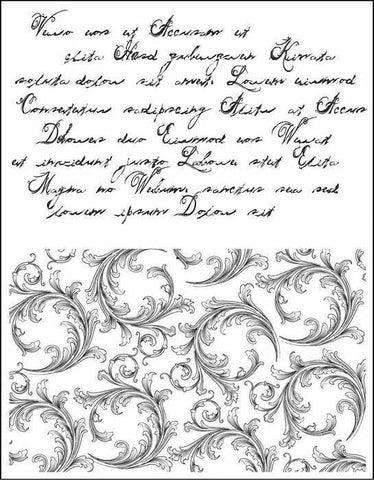 Vero eos et Accusam et
clita Kasd gubergren Kimata
soluta dolou sit amet. Lowem eiumod
Consetetur sadipscing Alitu at Accus
Dolowes duo Eiumod eos Wuat
et invidunt justo Labowe stet Clita
Magna no Webum, sanctus sea sed
lowem ipsum Dolou sit